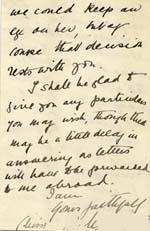 we could keep an
eye on her, but of
course that decision
rests with you.
I shall be glad to
give you any particulars
you may wish, though there
may be a little delay in
answering as letters
will have to be forwarded
to me abroad.
I am
Yours faithfully